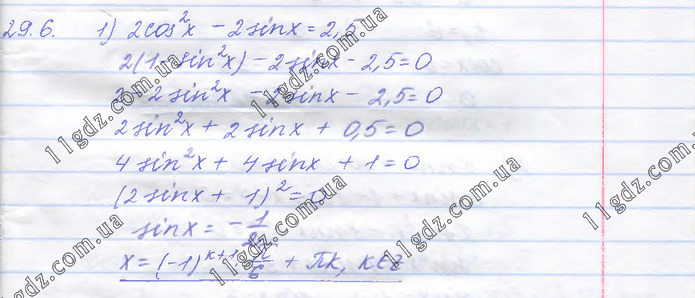 29.6. 1) 2cos²x - 2sinx = 2,5
2(1 - sin²x) - 2sinx - 2,5 = 0
2 - 2sin²x - 2sinx - 2,5 = 0
2sin²x + 2sinx + 0,5 = 0
4sin²x + 4sinx + 1 = 0
(2sinx + 1)² = 0
sinx = -1/2
x = (-1)^(k+1) π/6 + πk, k∈z
11gdz.com.ua
11gdz.com.ua
11gdz.com.ua
11gdz.com.ua
11gdz.com.ua